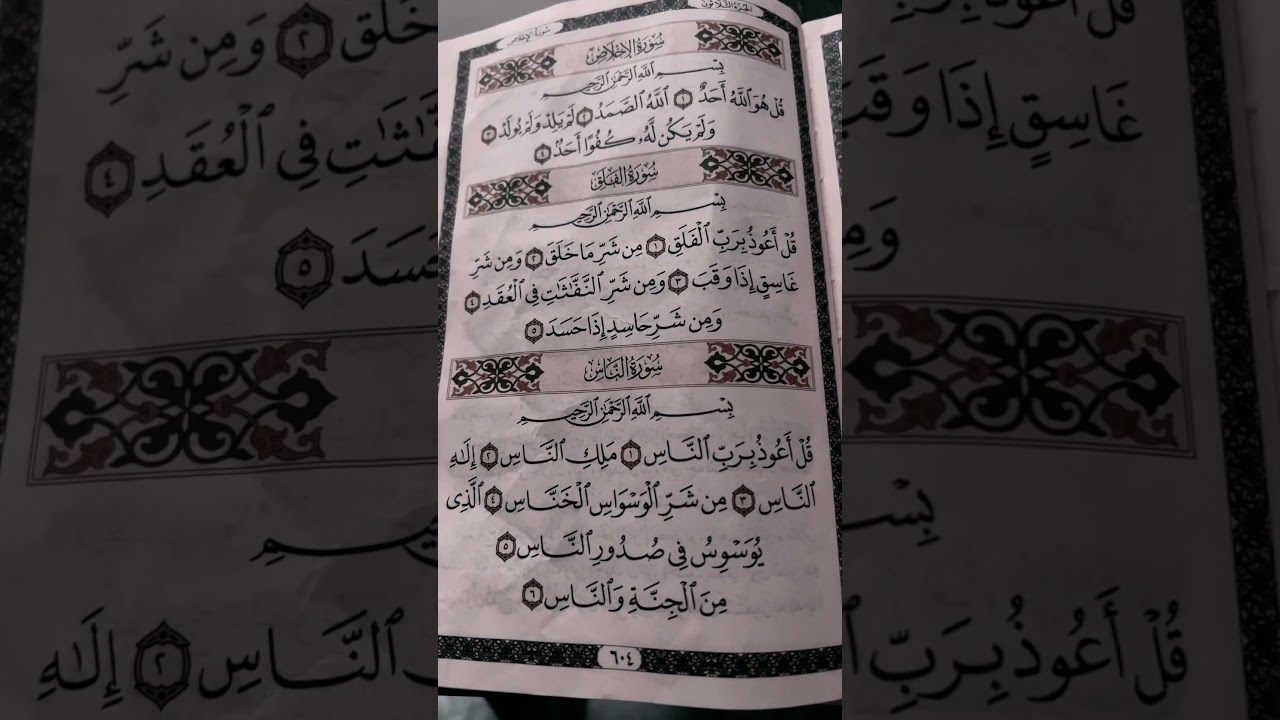 الجزء الثلاثون
سورة الإخلاص
سُورَةُ الإِخْلَاصِ
بِسْمِ ٱللَّهِ ٱلرَّحْمَٰنِ ٱلرَّحِيمِ
قُلْ هُوَ ٱللَّهُ أَحَدٌ ١ ٱللَّهُ ٱلصَّمَدُ ٢ لَمْ يَلِدْ وَلَمْ يُولَدْ ٣
وَلَمْ يَكُن لَّهُۥ كُفُوًا أَحَدٌۢ ٤
سُورَةُ الفَلَقِ
بِسْمِ ٱللَّهِ ٱلرَّحْمَٰنِ ٱلرَّحِيمِ
قُلْ أَعُوذُ بِرَبِّ ٱلْفَلَقِ ١ مِن شَرِّ مَا خَلَقَ ٢ وَمِن شَرِّ
غَاسِقٍ إِذَا وَقَبَ ٣ وَمِن شَرِّ ٱلنَّفَّٰثَٰتِ فِى ٱلْعُقَدِ ٤
وَمِن شَرِّ حَاسِدٍ إِذَا حَسَدَ ٥
سُورَةُ النَّاسِ
بِسْمِ ٱللَّهِ ٱلرَّحْمَٰنِ ٱلرَّحِيمِ
قُلْ أَعُوذُ بِرَبِّ ٱلنَّاسِ ١ مَلِكِ ٱلنَّاسِ ٢ إِلَٰهِ
ٱلنَّاسِ ٣ مِن شَرِّ ٱلْوَسْوَاسِ ٱلْخَنَّاسِ ٤ ٱلَّذِى
يُوَسْوِسُ فِى صُدُورِ ٱلنَّاسِ ٥
مِنَ ٱلْجِنَّةِ وَٱلنَّاسِ ٦
٦٠٤